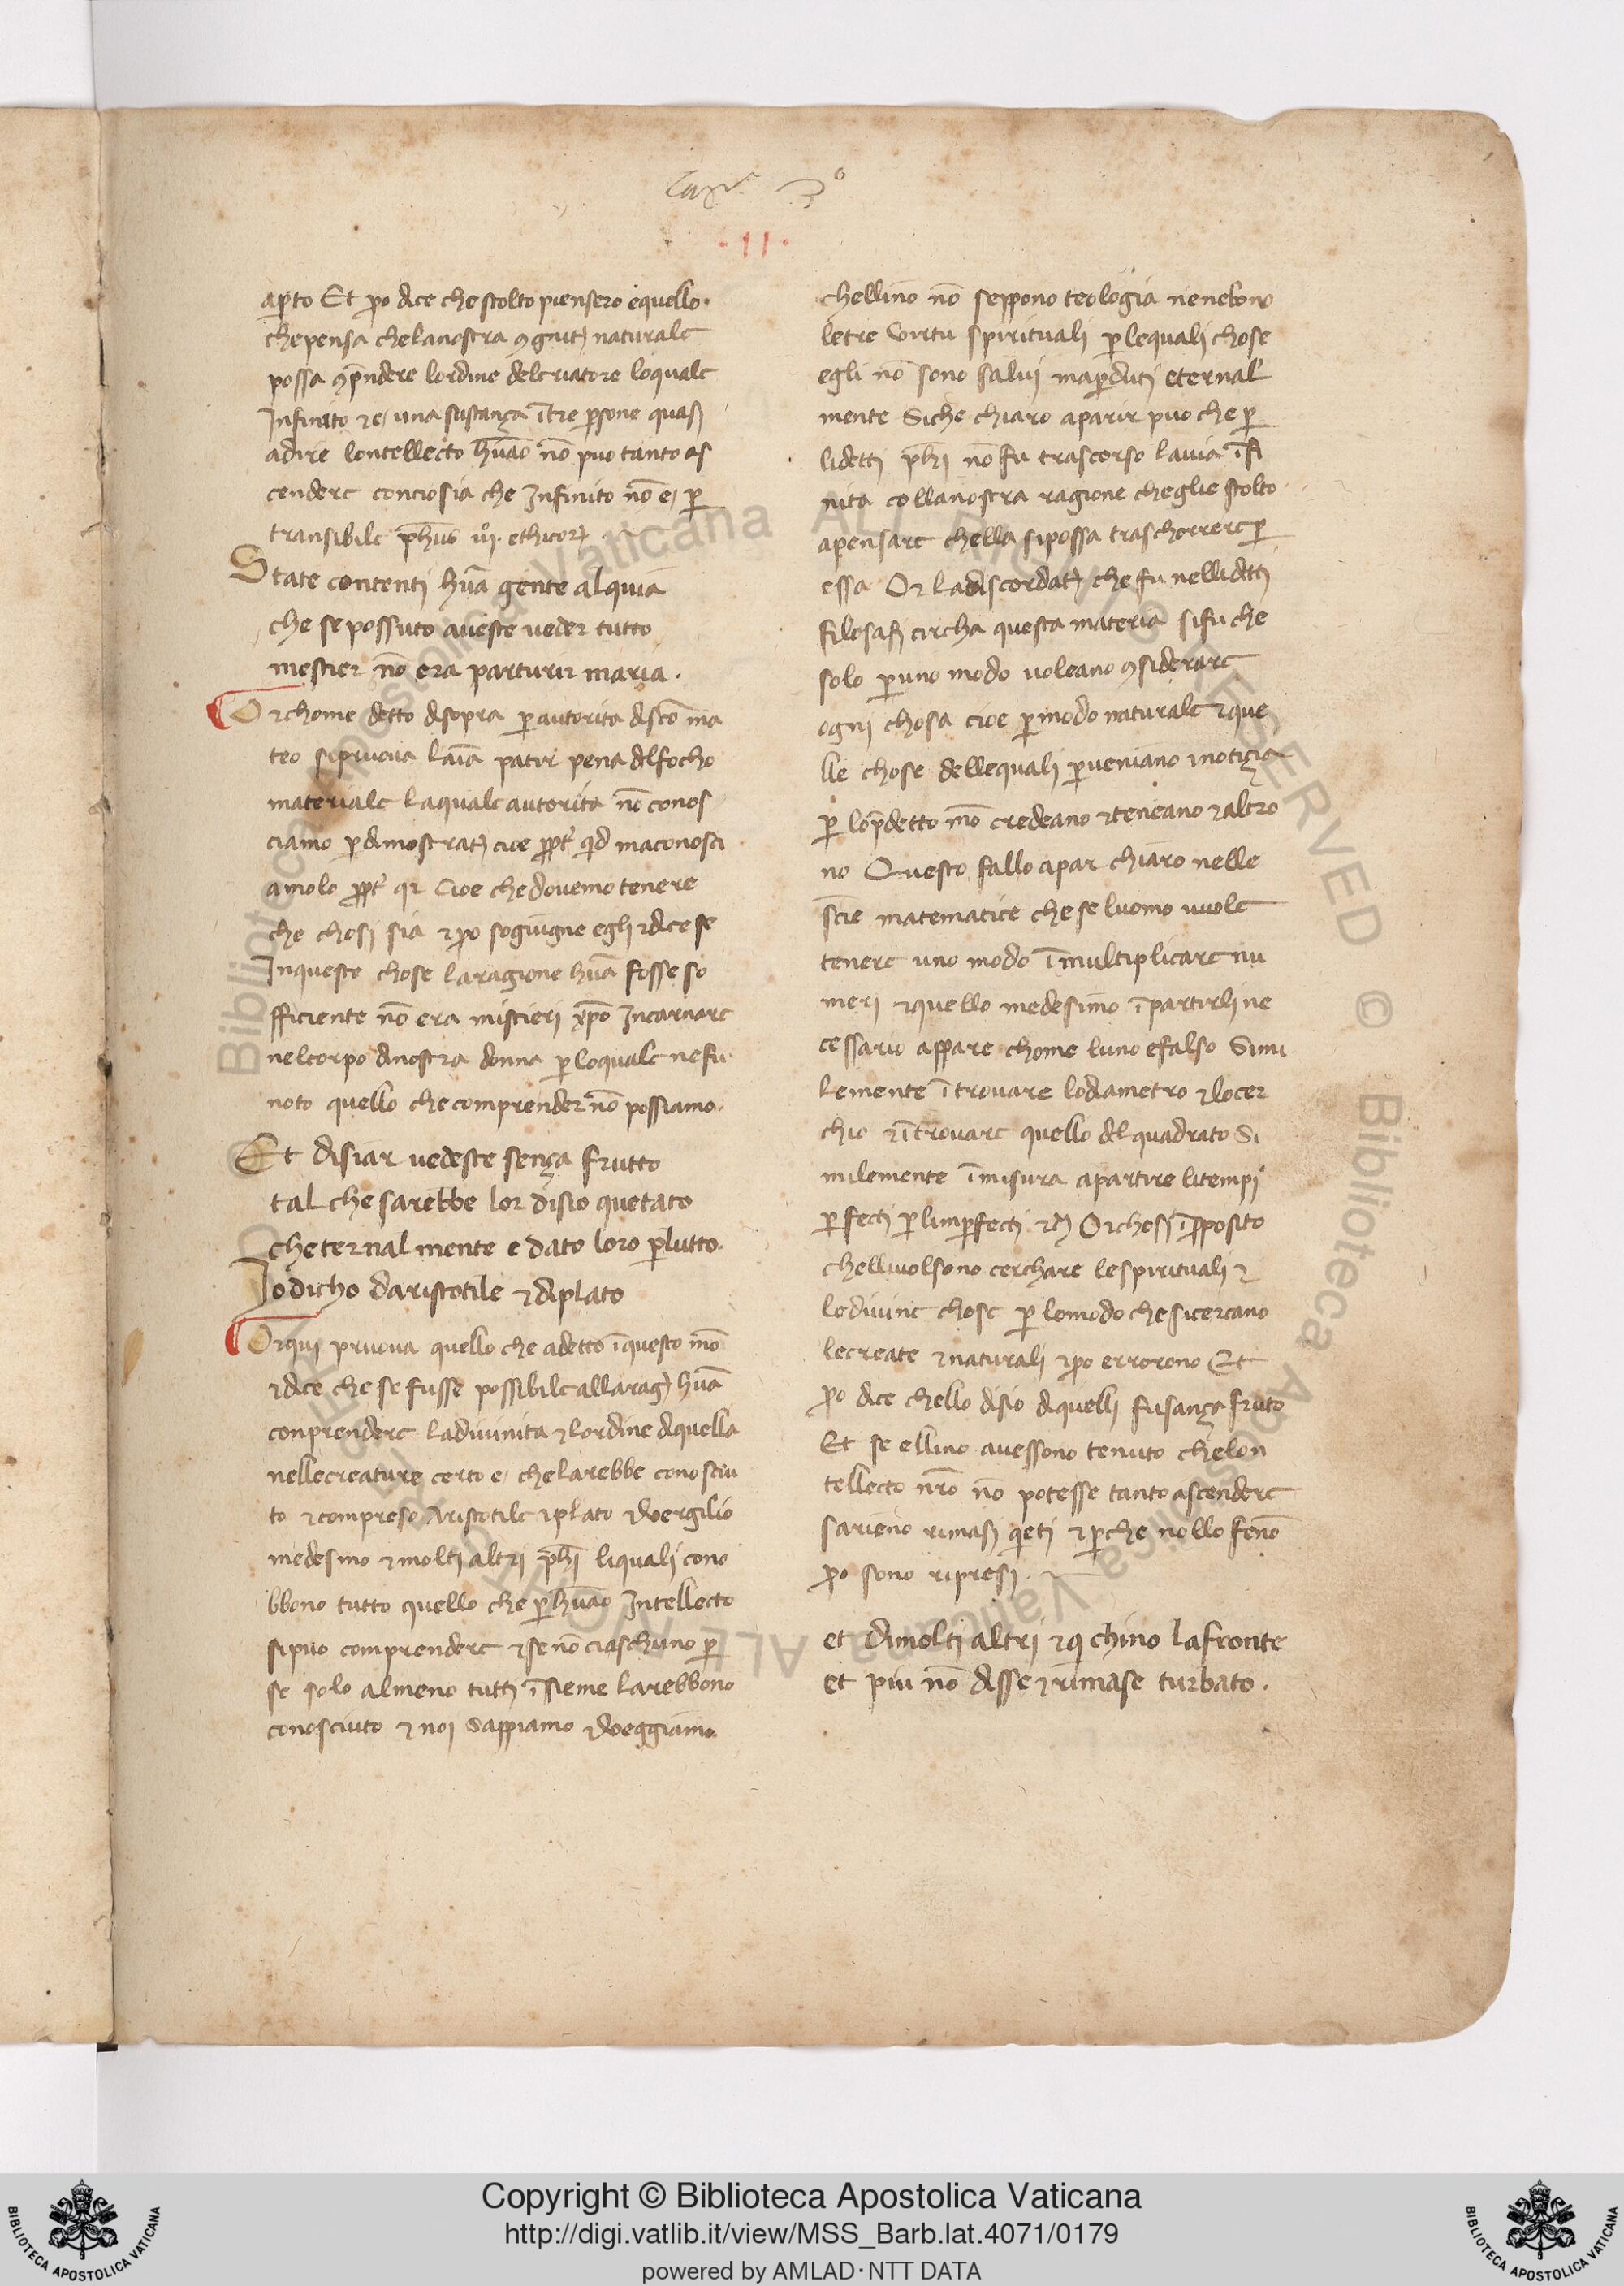 Cap° 3°
· 11 ·
aꝑto Et ꝑo dice che stolto piensero e quello.
che pensa che la nostra ꝯgnitꝫ naturale
possa ꝯp̄ndere lordine del criatore loquale
Infinito ⁊ e una sustança ī tre ꝑsone quasi
adire lontellecto hūāo nō puo tanto as
cendere conciosia che Infinito nō e ꝑ
transibile ph̄us iii. ethicoꝝ
State contenti hūa gente al quia
che se possuto aueste ueder tutto
mestier nō era parturir maria.
Or chome detto disopra ꝑ autorita di sco ma
teo si pruoua laīa patir pena del focho
materiale laquale autorita nō conos
ciamo ꝑ dimostratꝫ cioe ꝓpt̄ qid ma conosci
amolo ꝓpt̄ qr Cioe che douemo tenere
che chosi sia ⁊ ꝑo soguigne egli ⁊ dice se
In queste chose la ragione hūa fosse so
fficiente nō era mistieri xp̄o Incarnare
nel corpo di nostra donna ꝑ loquale ne fu
noto quello che comprender nō possiamo.
Et disiar uedeste sença frutto
tal che sarebbe lor disio quetato
che ternal mente e dato loro ꝑ lutto.
Io dicho daristotile ⁊ di plato
Or qui pruoua quello che a detto ī questo mō
⁊ dice che se fusse possibile alla ragꝫ hūa
conprendere la diuinita ⁊ lordine di quella
nelle creature certo e che larebbe conosciu
to ⁊ compreso Aristotile ⁊ plato ⁊ vergilio
medesimo ⁊ molti altri ph̄i li quali cono
bbono tutto quello che ꝑ hūāo Intellecto
si puo comprendere ⁊ se nō ciaschuno ꝑ
se solo almeno tutti īsieme larebbono
conosciuto ⁊ noi sappiamo ⁊ veggiamo
chellino nō seppono teologia ne nebono
letre virtu spirituali ꝑ lequali chose
egli nō sono salui ma ꝑduti eternal
mente Siche chiaro aparir puo che ꝑ
li detti ph̄i nō fu trascorso la uia īfi
nita colla nostra ragione che glie stolto
a pensare chella si possa traschorrere ꝑ
essa Or la discordatꝫ che fu nelli detti
filosafi circha questa materia si fu che
solo ꝑ uno modo uoleano ꝯsiderare
ogni chosa cioe ꝑ modo naturale ⁊ que
lle chose dellequali ꝑueniano i notiçia
ꝑ lo p̄detto mō credeano ⁊ teneano ⁊ altro
no Questo fallo apar chiaro nelle
scīe matematice che se luomo uuole
tenere uno modo ī multiplicare nu
meri ⁊ quello medesimo ī partirli ne
cessario appare chome luno e falso Simi
lemente ī trouare lo diametro ⁊ lo cer
chio ⁊ ī trouare quello del quadrato Si
milemente ī misura a partire li tempi
ꝑfecti ꝑ li imꝑfecti ⁊c̄ Or chosi ī ꝓposito
chelli uolsono cerchare le spirituali ⁊
le diuine chose ꝑ lo modo che si cercano
le create ⁊ naturali ⁊ ꝑo errorono Et
ꝑo dice chello disio di quelli fu sança fruto
Et se ellino auessono tenuto che lon
tellecto nr̄o nō potesse tanto ascendere
sarieno rimasi q̄eti ⁊ ꝑche nollo fenō
ꝑo sono ripresi.
et di molti altri ⁊ qi chino la fronte
et piu nō disse ⁊ rimase turbato.
Copyright © Biblioteca Apostolica Vaticana
http://digi.vatlib.it/view/MSS_Barb.lat.4071/0179
powered by AMLAD·NTT DATA